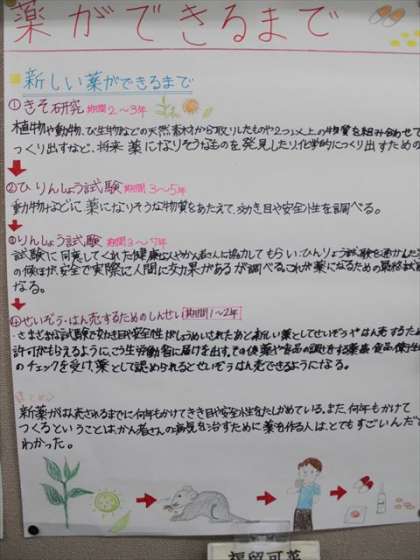 薬ができるまで
新しい薬ができるまで
①きそ研究 期間2～3年
植物や動物、び生物などの天然素材から取りだしたものや2つ以上の物質を組み合わせて
つくり出すなど、将来薬になりそうなものを発見したり、化学的につくり出すための
②ひりんしょう試験 期間3～5年
動物などに薬になりそうな物質をあたえて、効き目や安全性を調べる。
③りんしょう試験 期間3～7年
試験に同意してくれた健康な人やかん者さんに協力してもらい、ひんりょう試験を
の候ほが、安全で実際に人間に効果があるか調べる。これが薬になるための最終試
なる。
④せいぞう・はん売するためのしんせい[期間1～2年]
・さまざまな試験で効き目や安全性がしょうめいされたあと新しい薬としてせいぞうやはん売するため
許可がもらえるように、こう生労働省に届けを出す。
のチェックを受け、薬として認められるとせいぞうはん売できるようになる。
まとめ
新薬がはん売されるまでに何年もかけてきき目や安全性をたしかめている。また、何年もかけて
つくるということはかん者さんの病気を治すために薬を作る人は、とてもすごいんだ
わかった。
福留可菜